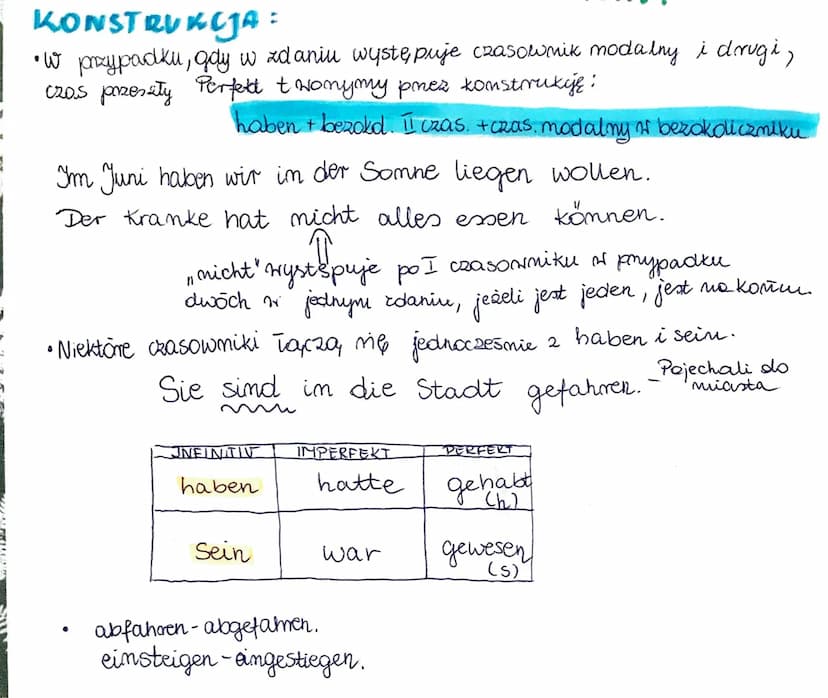 KONSTRUKCJA:
• W przypadku, gdy w zdaniu występuje czasownik modalny i drugi,
czas przeszły Perfekt tworzymy przez konstrukcję:
haben + bezokol. II czas. + czas. modalny w bezokoliczniku
Im Juni haben wir in der Sonne liegen wollen.
Der Kranke hat nicht alles essen können.
„nicht" występuje po I czasowniku w przypadku
dwóch w jednym zdaniu, jeżeli jest jeden, jest na końcu.
• Niektóre czasowniki łączą się jednocześnie z haben i sein.
Sie sind in die Stadt gefahren. - Pojechali do
miasta
INFINITIV IMPERFEKT PERFEKT
haben hatte gehabt
(h)
sein war gewesen
(s)
• abfahren - abgefahren.
einsteigen - eingestiegen.